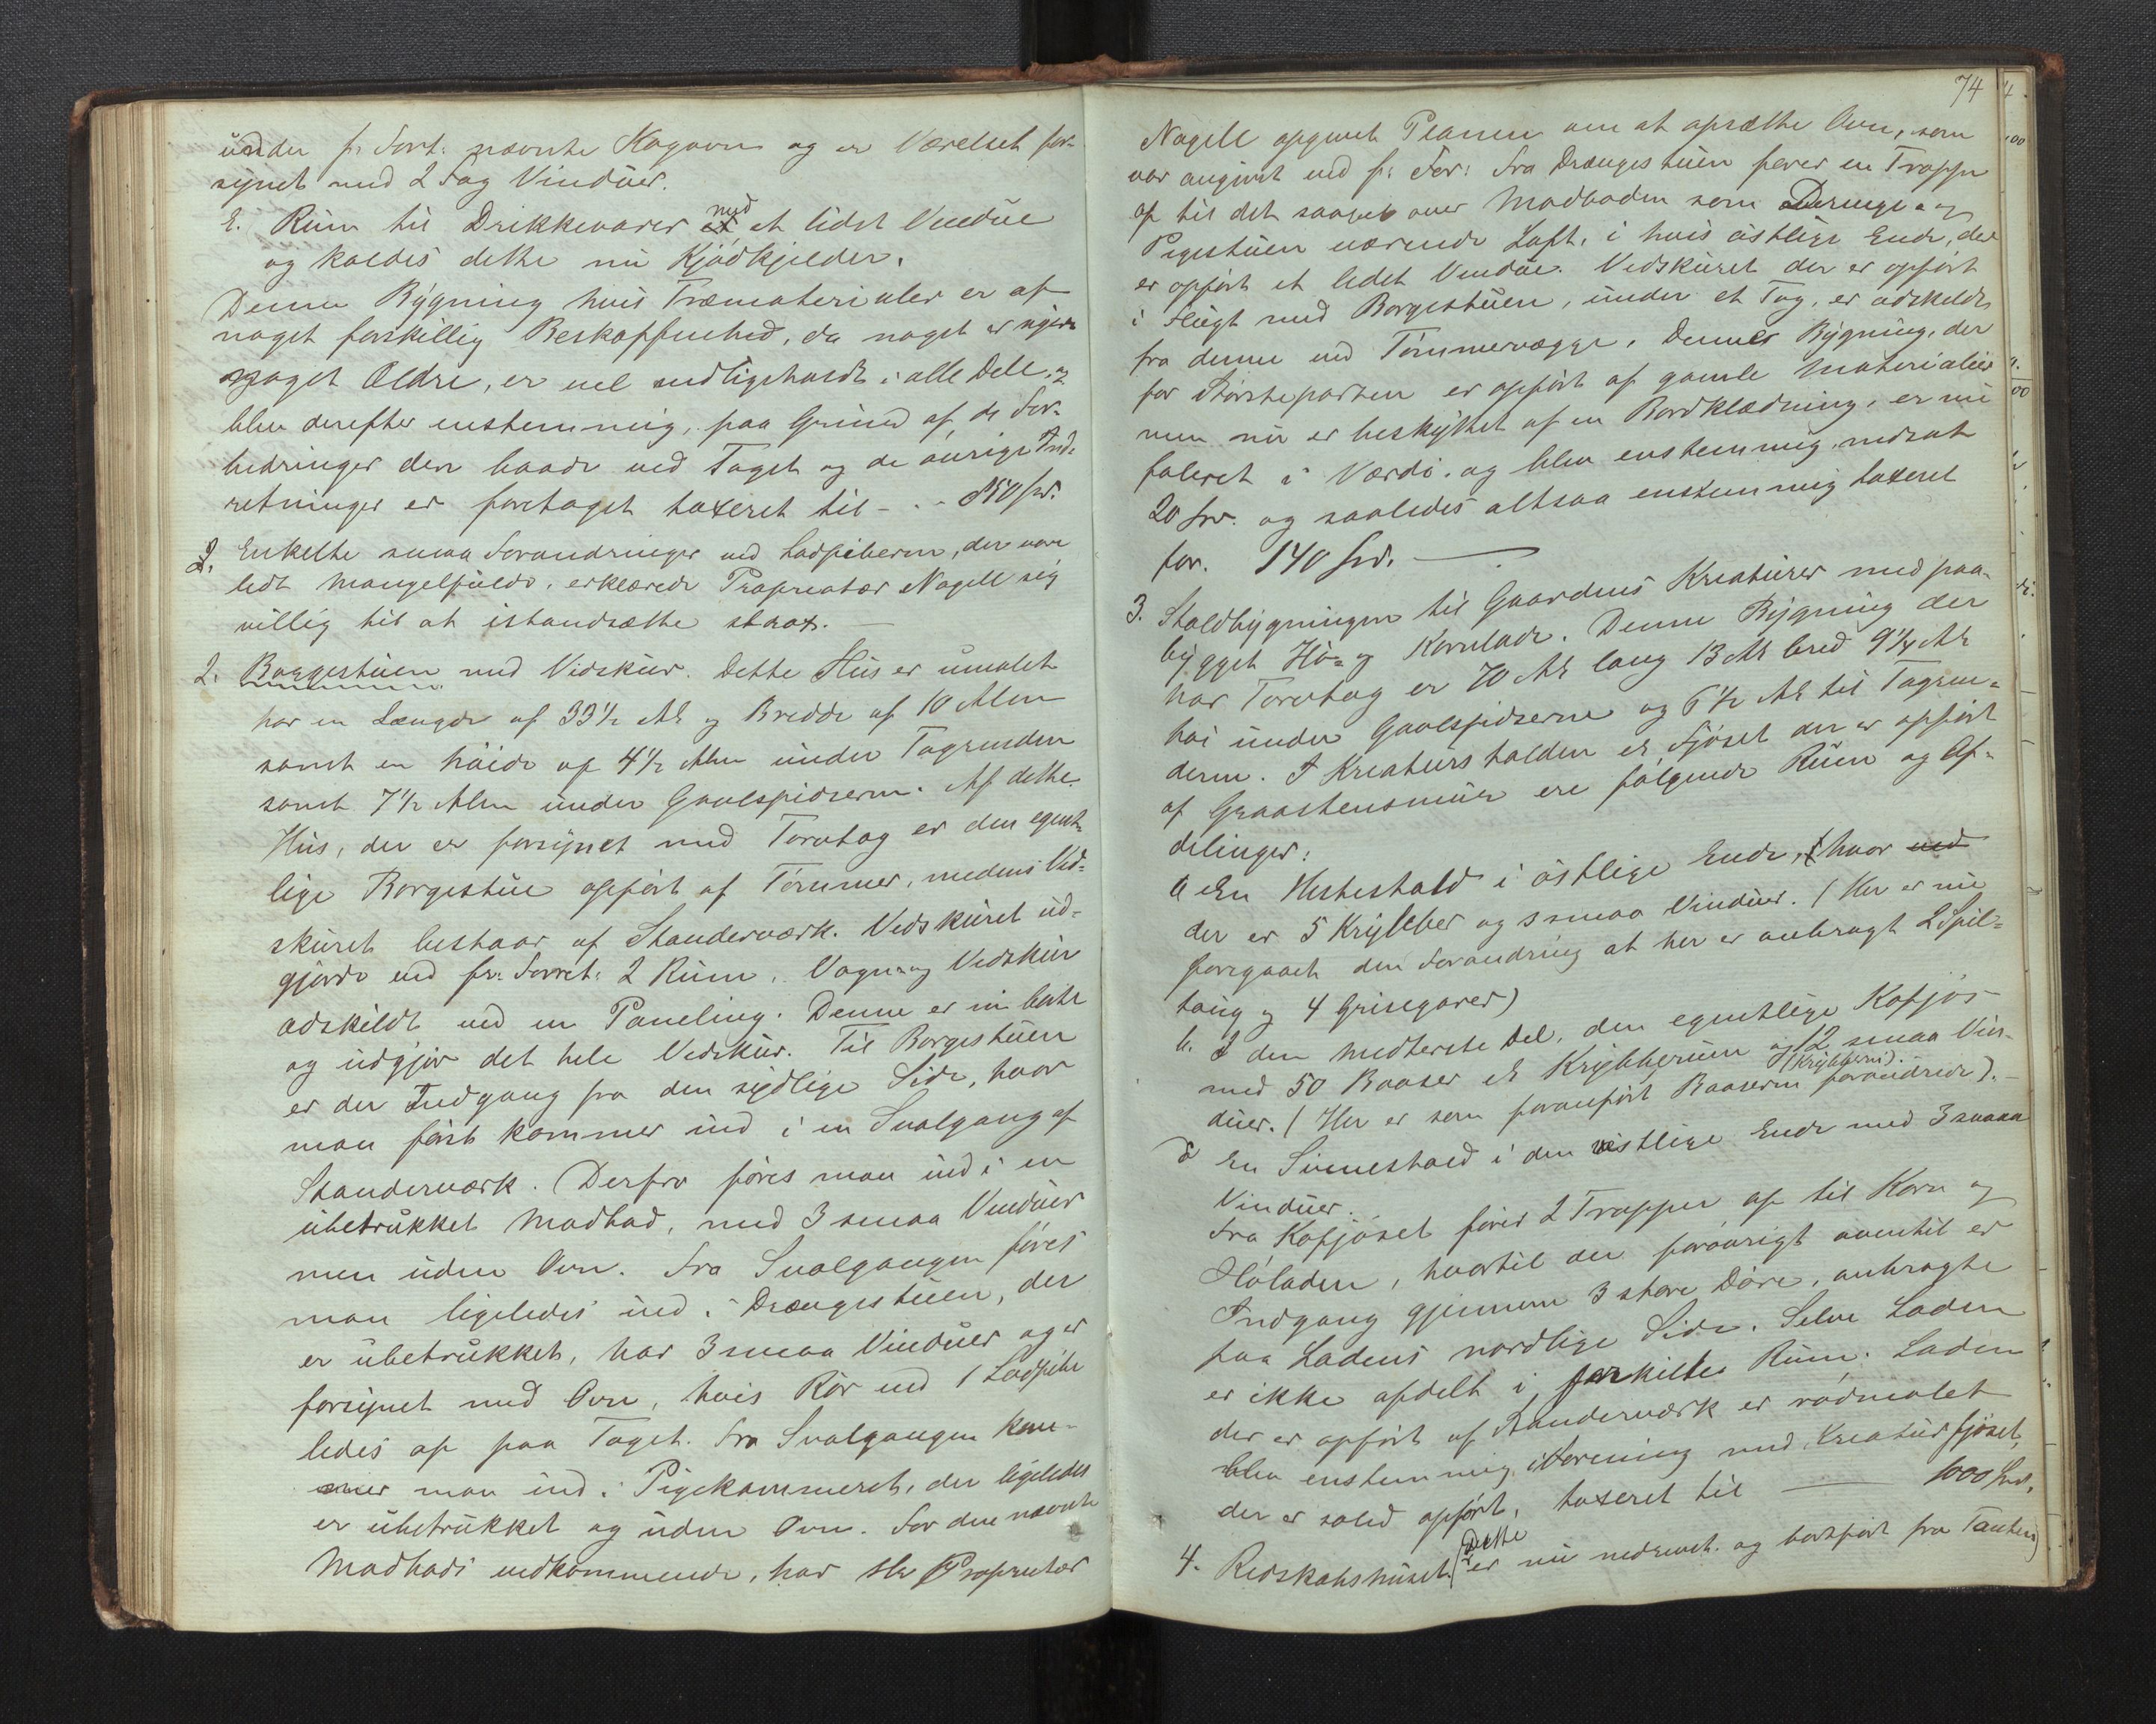 under fr. Forr: nævnte Kogovn og er Værelset for-
synet med 2 Fag Vinduer.
E. Rum til Drikkevarer med et lidet Vindue
og kaldes dette nu Kjødkjelder.
Denne Bygning hvis Træmaterialer er af
noget forskillig Beskaffenhed, da noget er nyere
noget Ældre, er vel vedligeholdt i alle Dele, og
blev derefter enstemmig, paa Grund af de For-
bedringer der baade ved Taget og de øvrige Ind-
retninger er foretaget taxeret til - . - 850 Spd.
2. Enkelte smaa Forandringer ved Ladpiberne, der vare
lidt Mangelfulde, erklærede Proprietær Nagell sig
villig til at istandsætte strax. —
2. Borgestuen med Vedskur. Dette Hus er umalet
har en Længde af 33½ Al og Bredde af 10 Alen
samt en Høide af 4½ Alen under Tagrenden
samt 7½ Alen under Gavlspidserne. Af dette
Hus, der er forsynet med Torvtag er den egent-
lige Borgestue opført af Tømmer, medens Ved-
skuret bestaar af Standerværk. Vedskuret ud-
gjorde ved fr: Forret: 2 Rum, Vogn- og Vedskur
adskildt ved en Paneling. Denne er nu borte
og udgjør det hele Vedskur. Til Borgestuen
er der Indgang fra den sydlige Side, hvor
man først kommer ind i en Svalgang af
Standerværk. Derfra føres man ind i en
ubetrukket Madbod, med 3 smaa Vinduer
men uden Ovn. Fra Svalgangen føres
man ligeledes ind i Drængestuen, der
er ubetrukket, har 3 smaa Vinduer og er
forsynet med Ovn, hvis Rør ved 1 Ladpibe
ledes op paa Taget. Fra Svalgangen kom-
mer man ind i Pigekammeret, der ligeledes
er ubetrukket og uden Ovn. For den nævnte
Madbods vedkommende, har Hr Proprietær
74
Nagell opgivet Planen om at opsætte Ovn, som
var angivet ved fr: For: Fra Drængestuen fører en Trappe
op til det saavel over Madboden som Drenge- og
Pigestuen værende Loft, i hvis østlige Ende, der
er opført et lidet Vindue. Vedskuret der er opført
i Flugt med Borgestuen, under et Tag, er adskildt
fra denne ved Tømmervægge. Denne Bygning, der
for Størsteparten er opført af gamle Materialier
men nu er beskyttet af en Bordklædning, er nu
faleret i Værdi og blev enstemmig nedsat
20 Spd. og saaledes altsaa enstemmig taxeret
for. 140 Spd. —
3. Staldbygningen til Gaardens Kreaturer med paa-
bygget Hø- og Kornlade. Denne Bygning der
har Torvtag er 70 Al lang 13 Al bred 9¼ Al
høi under Gavlspidserne og 6½ Al til Tagren-
derne. I Kreaturstalden el. Fjøset der er opført
af Graastensmur ere følgende Rum og Af-
delinger:
a En Hestestald i østlige Ende, hvor ved
der er 5 Krybber og 3 smaa Vinduer. (Her er nu
foregaaet den Forandring at her er anbragt 2 Spil-
taug og 4 Grisegarer)
b. I den Mederste Del, den egentlige Kofjøs
med 50 Baaser et Krybberum og 12 smaa Vin-
duer. (Her er som foranført Baaserne (Krybberne). forandrede). —
d En Svinestald i den vestlige Ende med 3 smaa
Vinduer.
Fra Kofjøset fører 2 Trapper op til Korn og
Høladen, hvortil der forøvrigt oventil er
Indgang gjennem 3 store Døre, anbragte
paa Ladens nordlige Side. Selve Laden
er ikke afdelt i forskilte Rum. Laden
der er opført af Standerværk er rødmalet
blev enstemmig i Forening med Kreaturfjøset,
der er solid opført, taxeret til — 1000 Spd.
4. Redskabshuset. (Dette er nu nedrevet og bortført fra Tomten)